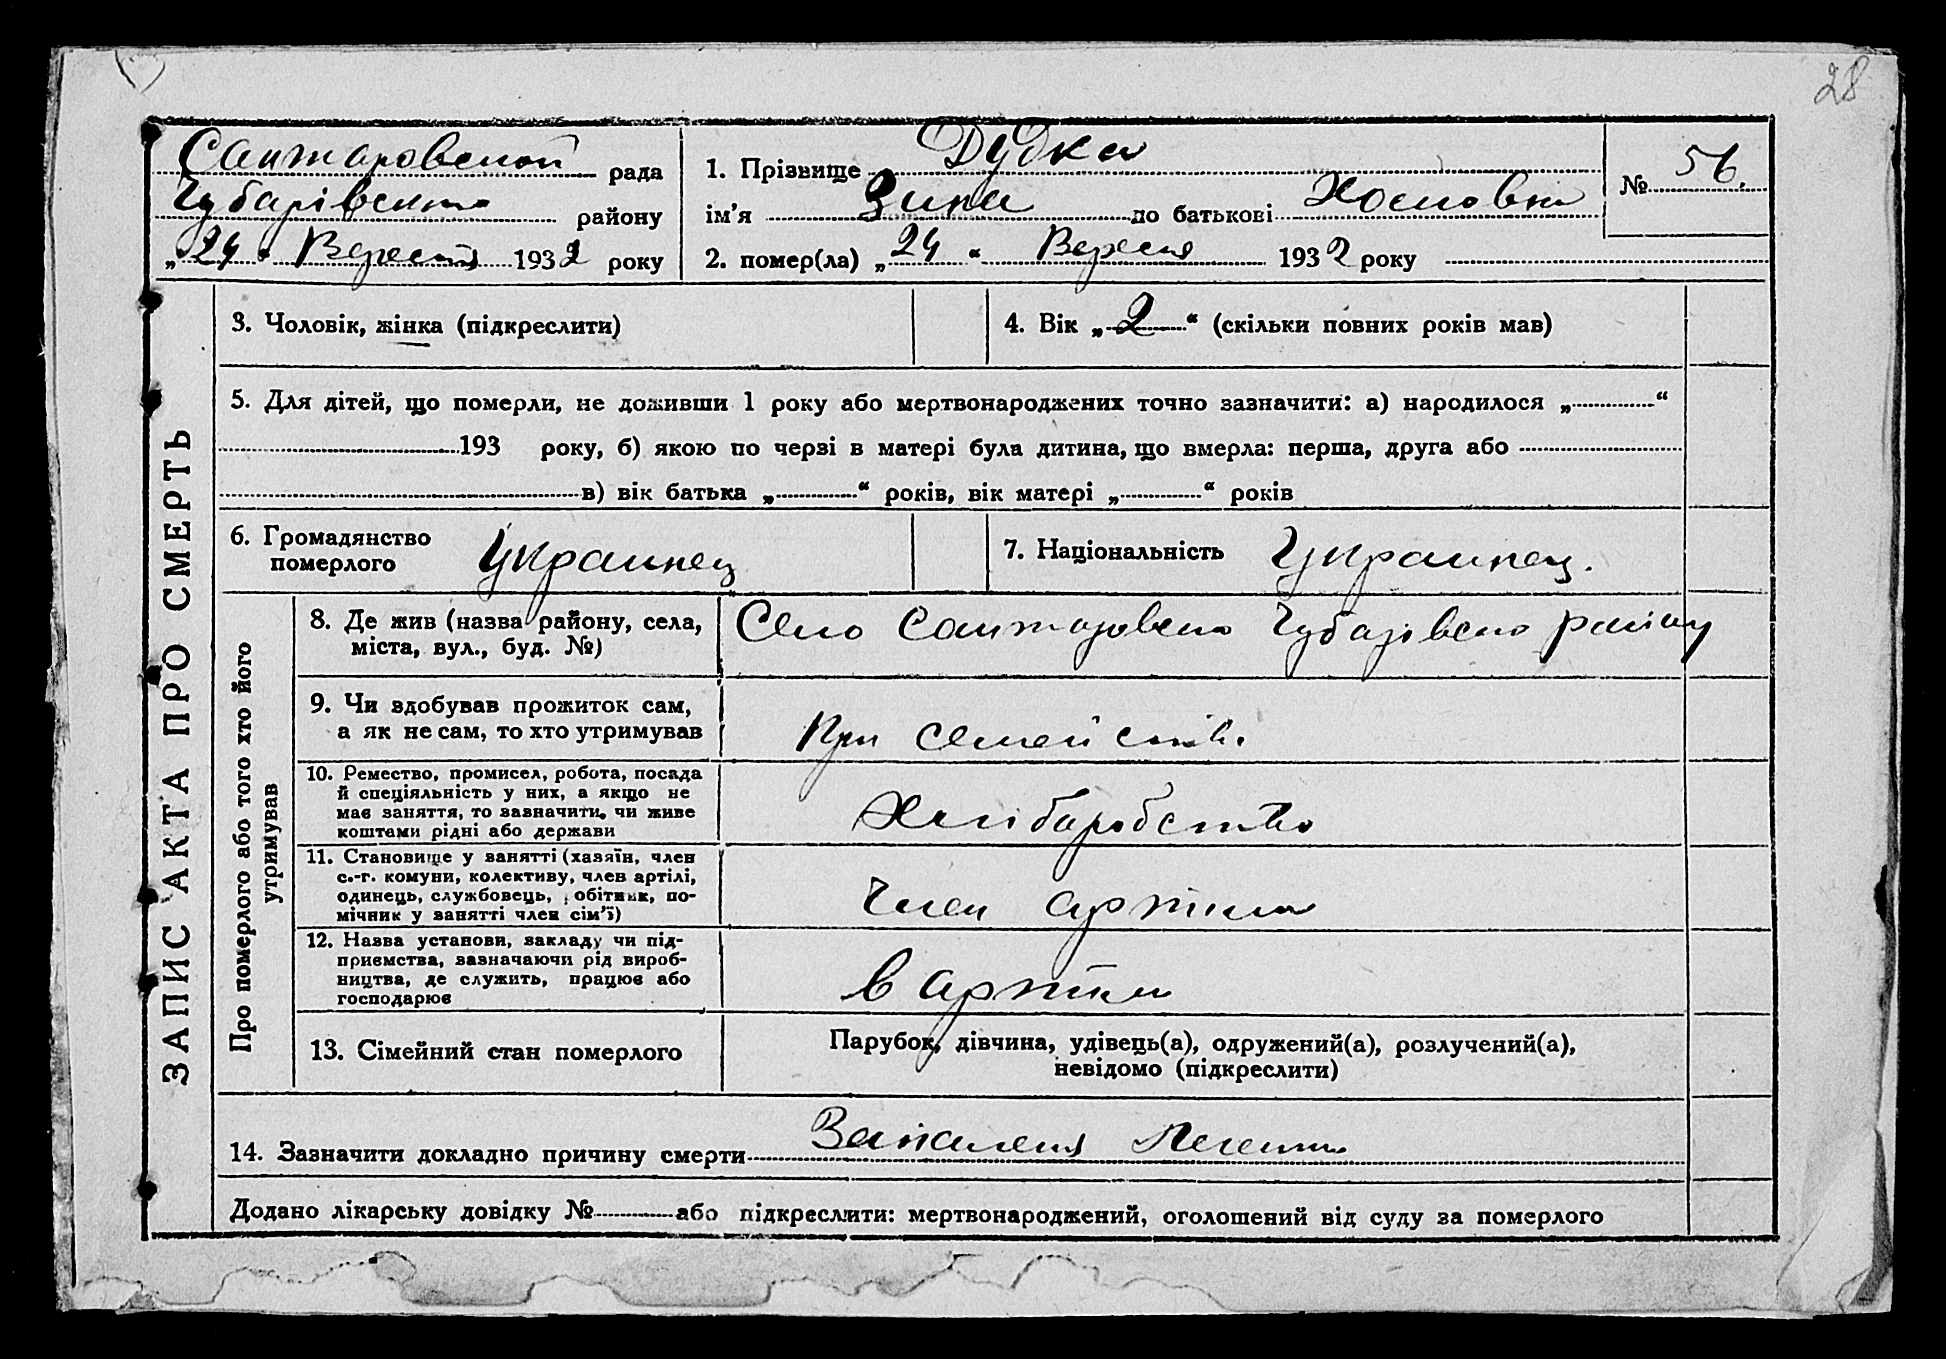 28
Сантаровской рада
Чубарівського району
„24“ Вересня 1932 року
1. Прізвище Дудка
ім’я Зина по батькові
№ 56.
2. помер(ла) „24“ Вересня 1932 року
ЗАПИС АКТА ПРО СМЕРТЬ
3. Чоловік, жінка (підкреслити)
4. Вік „2“ (скільки повних років мав)
5. Для дітей, що померли, не доживши 1 року або мертвонароджених точно зазначити: а) народилося „ “
193 року, б) якою по черзі в матері була дитина, що вмерла: перша, друга або
в) вік батька „ “ років, вік матері „ “ років
6. Громадянство
померлого Украинец
7. Національність Украинец.
Про померлого або того хто його
утримував
8. Де жив (назва району, села,
міста, вул., буд. №)
Село Чубарівского району
9. Чи здобував прожиток сам,
а як не сам, то хто утримував
При семействі.
10. Ремество, промисел, робота, посада
й спеціяльність у них, а якщо не
має заняття, то зазначити, чи живе
коштами рідні або держави
Хлібаробство
11. Становище у занятті (хазяїн, член
с.-г. комуни, колективу, член артілі,
одинець, службовець, обітник, по-
мічник у занятті член сім’ї)
Член артили
12. Назва установи, закладу чи під-
приємства, зазначаючи рід вироб-
ництва, де служить, працює або
господарює
в артили
13. Сімейний стан померлого
Парубок, дівчина, удівець(а), одружений(а), розлучений(а),
невідомо (підкреслити)
14. Зазначити докладно причину смерти Запаления Легени
Додано лікарську довідку № або підкреслити: мертвонароджений, оголошений від суду за померлого